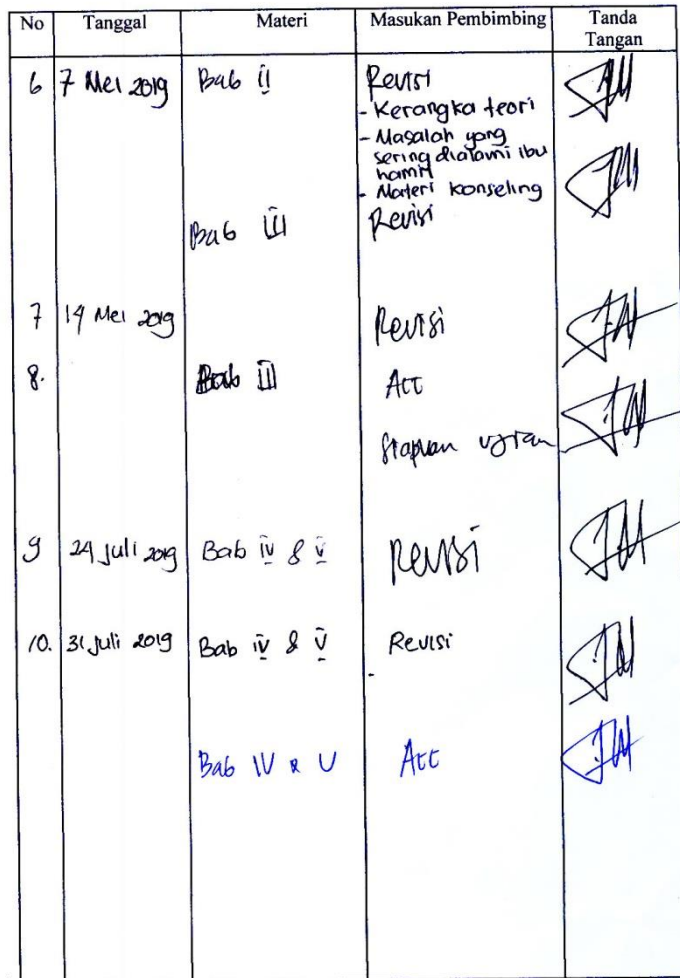 No Tanggal Materi Masukan Pembimbing Tanda Tangan
6 7 Mei 2019 Bab II Revisi
- Kerangka teori
- Masalah yang
sering dialami ibu
hamil
- Materi konseling
Bab III Revisi
7 14 Mei 2019 Revisi
8. Bab III Acc
Siapkan ujian
9 24 Juli 2019 Bab IV & V Revisi
10. 31 Juli 2019 Bab IV & V Revisi
-
Bab IV & V Acc